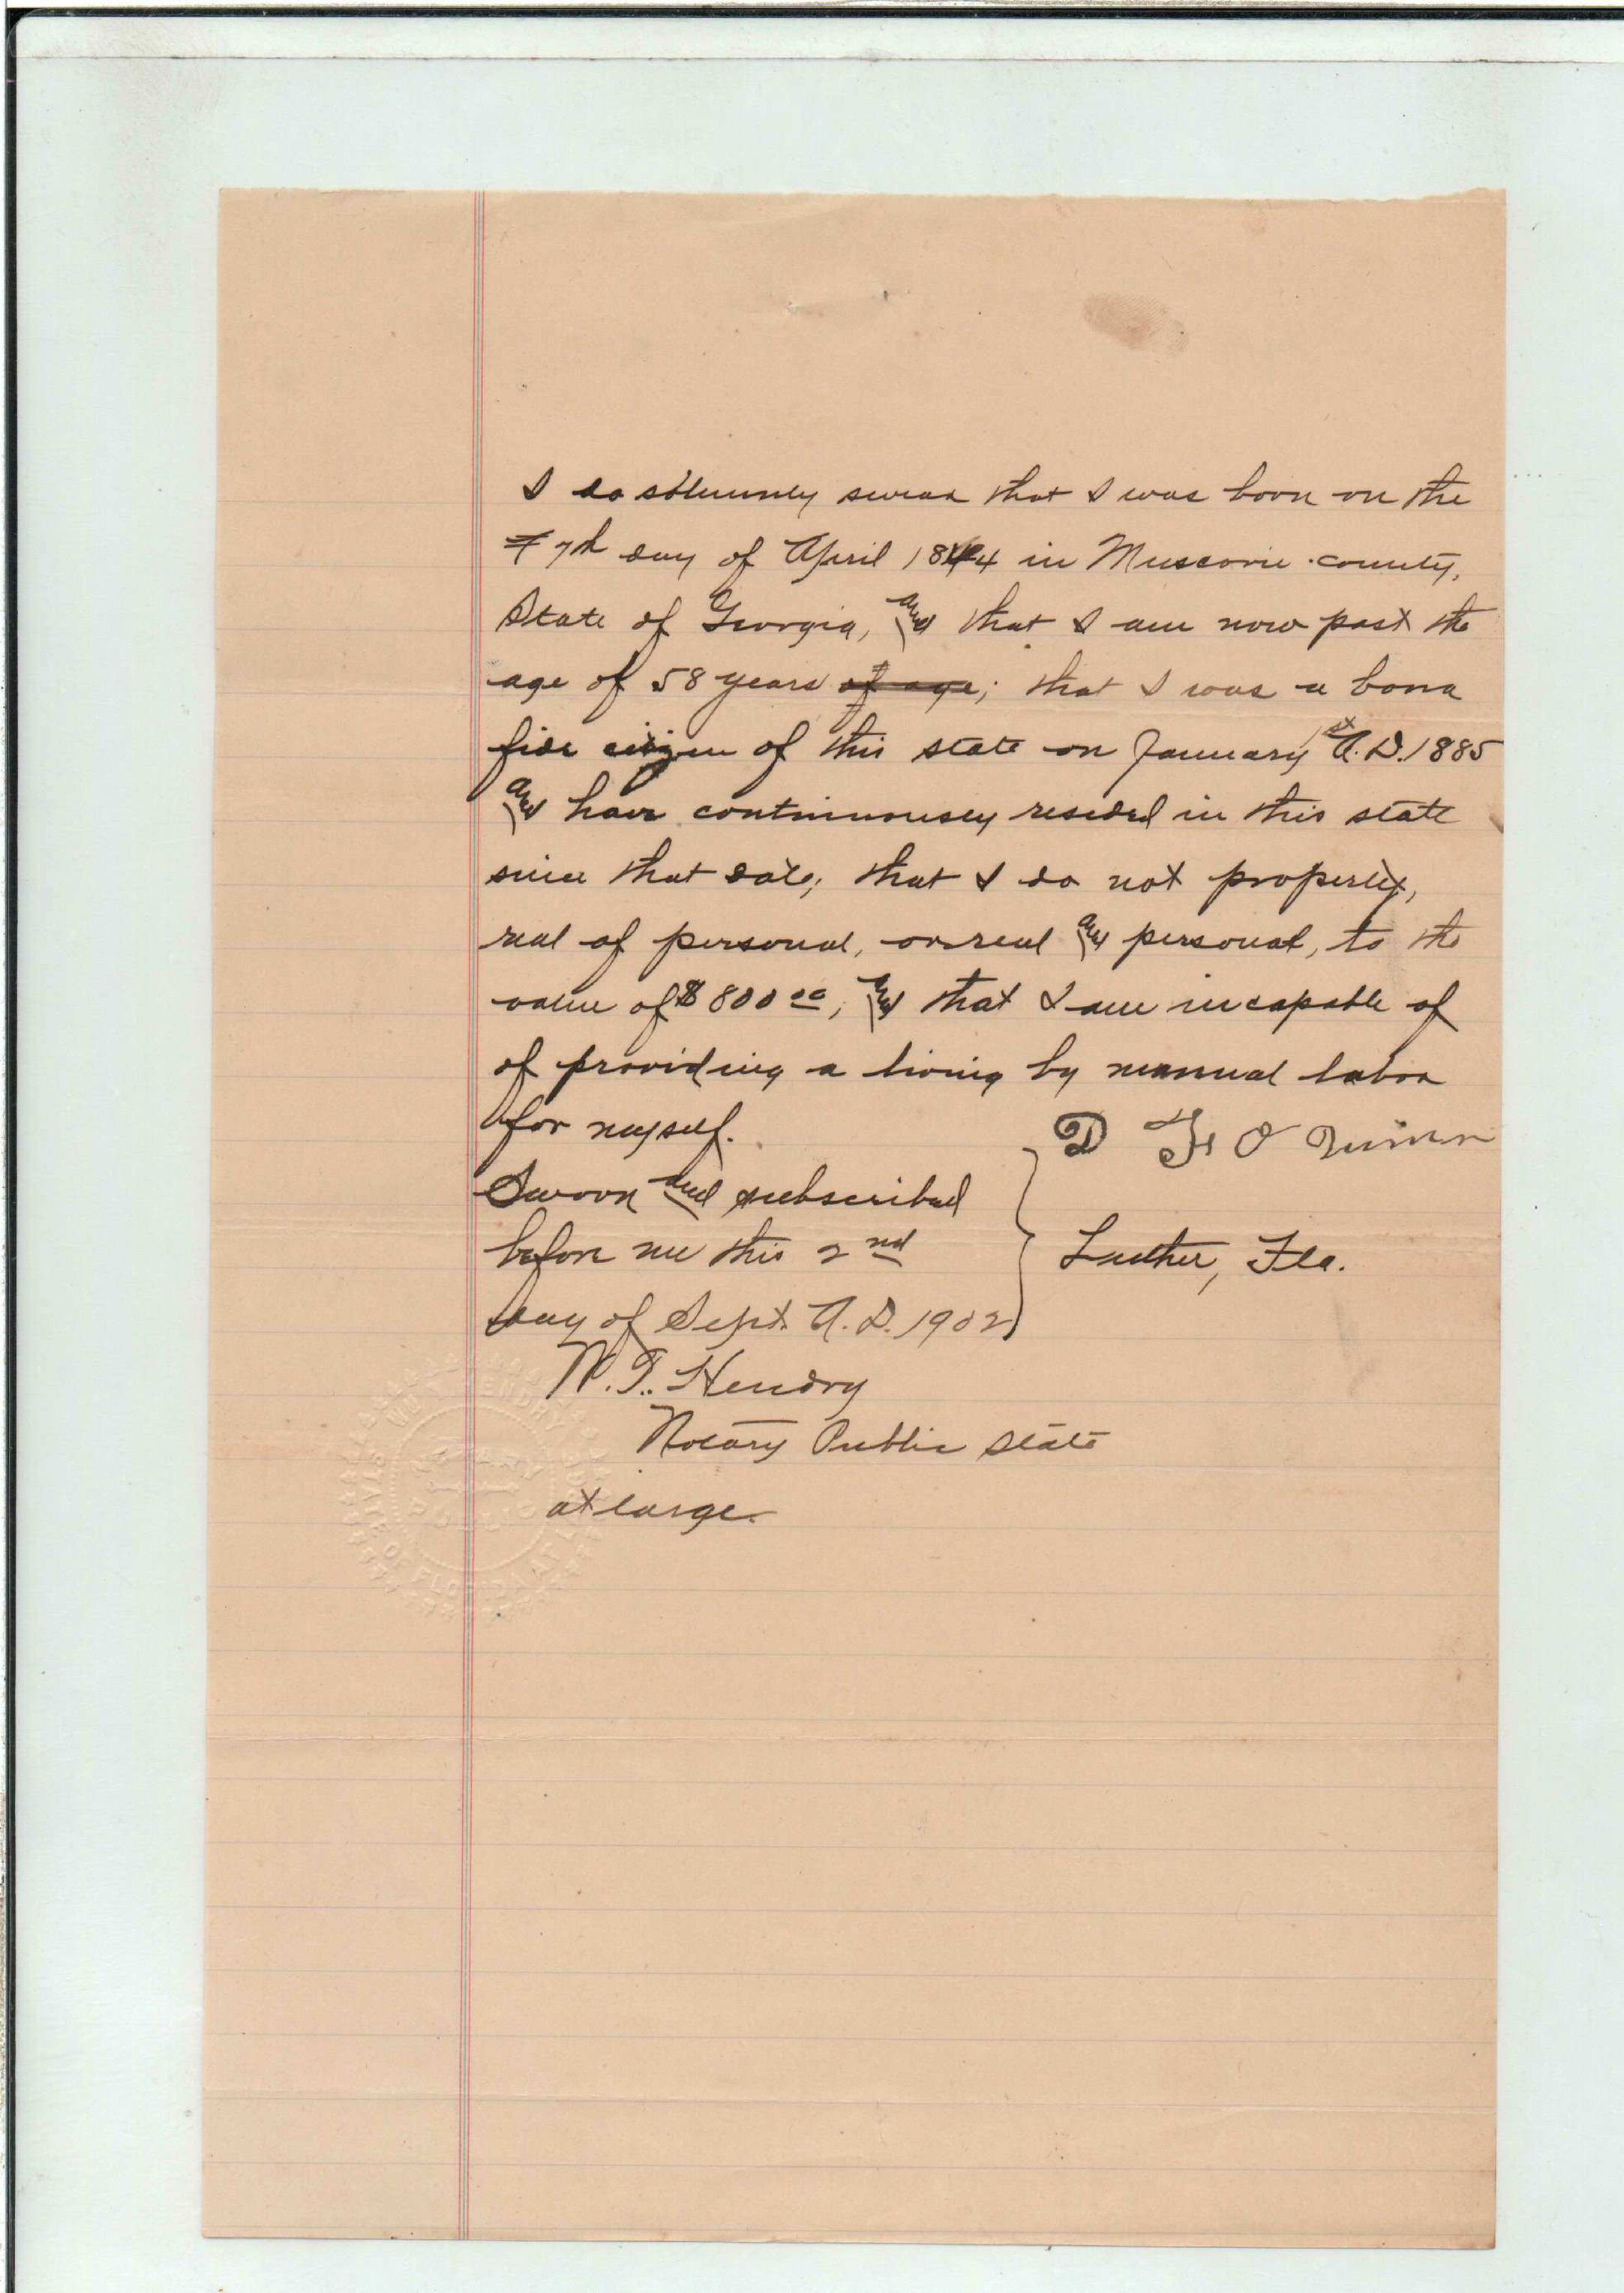 I do solemnly swear that I was born on the
7th day of April 1844 in Muscovie county,
State of Georgia, and that I am now past the
age of 58 years of age; that I was a bona
fide citizen of this state on January 1st A.D. 1885
and have continuously resided in this state
since that date; that I do not property,
real of personal, or real and personal, to the
value of $800.00, and that I am incapable of
of providing a living by manual labor
for myself.
D F O Quinn
Sworn and subscribed
before me this 2nd
day of Sept. A.D. 1902
Luther, Fla.
W. T. Hendry
Notary Public State
at large.
STATE OF FLORIDA AT